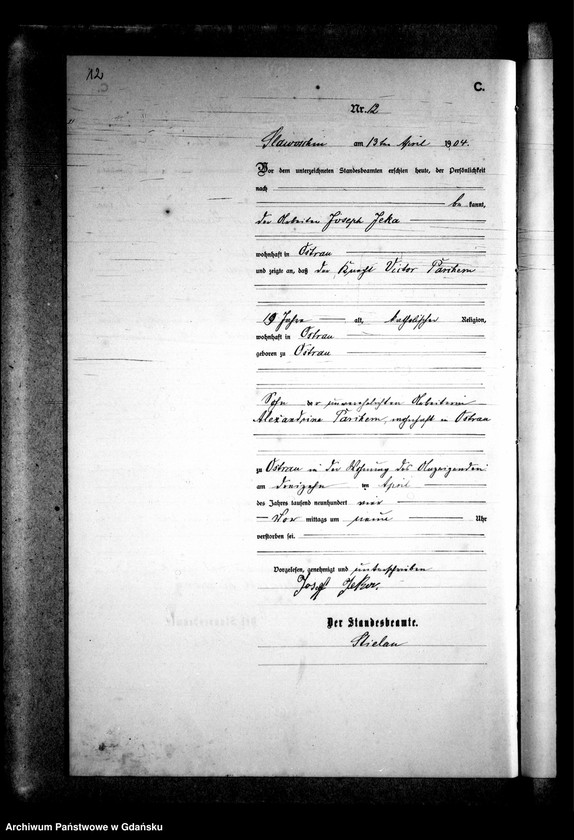 12
C.
Nr. 12
Slawoschin am 13ten April 1904.
Vor dem unterzeichneten Standesbeamten erschien heute, der Persönlichkeit
nach
bekannt,
der Arbeiter Joseph Jeka
wohnhaft in Ostrau
und zeigte an, daß der Knecht Victor Parchem
19 Jahre alt, katholischer Religion,
wohnhaft in Ostrau
geboren zu Ostrau
Sohn der unverehelichten Arbeiterin
Alexandrine Parchem, wohnhaft in Ostrau
zu Ostrau in der Wohnung des Anzeigenden
am dreizehn ten April
des Jahres tausend neunhundert vier
Vor mittags um neun Uhr
verstorben sei.
Vorgelesen, genehmigt und unterschrieben
Josef Jeka.
Der Standesbeamte.
Stielau
Archiwum Państwowe w Gdańsku